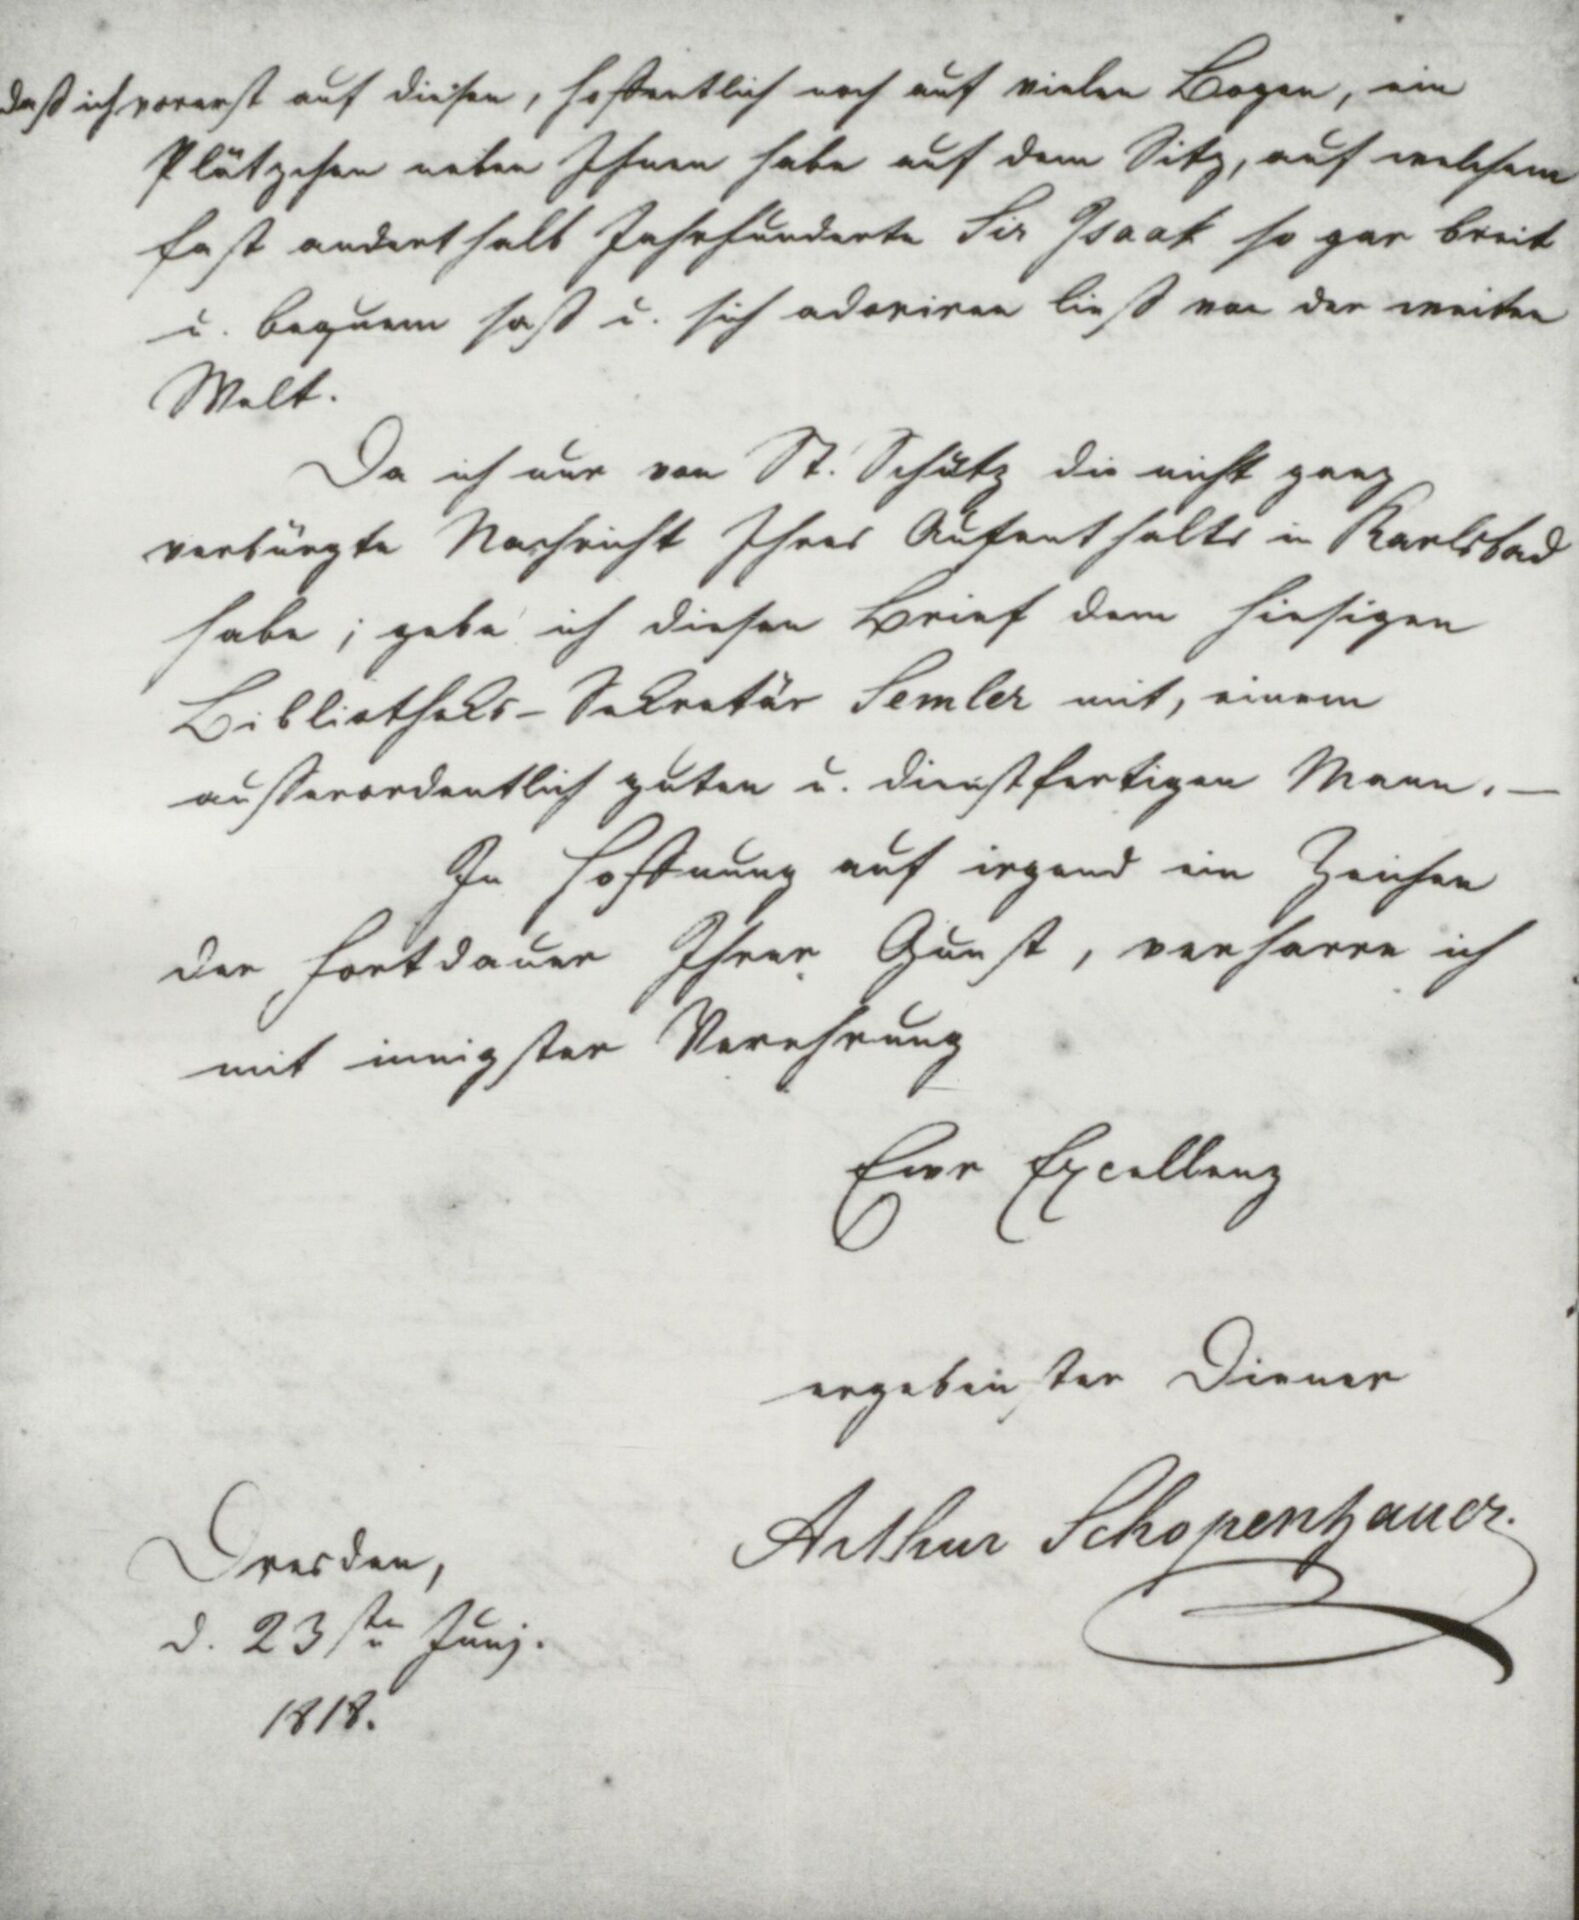 daß ich vorerst auf diesen, hoffentlich noch auf vielen Bogen, ein
Plätzchen neben Ihnen habe auf dem Sitz, auf welchem
fast anderthalb Jahrhunderte Sir Isaak so gar breit
u. bequem saß u. sich adoriren ließ von der weiten
Welt.
Da ich nur von St. Schütz die nicht ganz
verbürgte Nachricht Ihres Aufenthalts in Karlsbad
habe; gebe ich diesen Brief dem hiesigen
Bibliotheks-Sekretär Semler mit, einem
ausserordentlich guten u. dienstfertigen Mann. —
In Hoffnung auf irgend ein Zeichen
der Fortdauer Ihrer Gunst, verharre ich
mit innigster Verehrung
Ewr Excellenz
ergebenster Diener
Arthur Schopenhauer.
Dresden,
d. 23sten Junj.
1818.